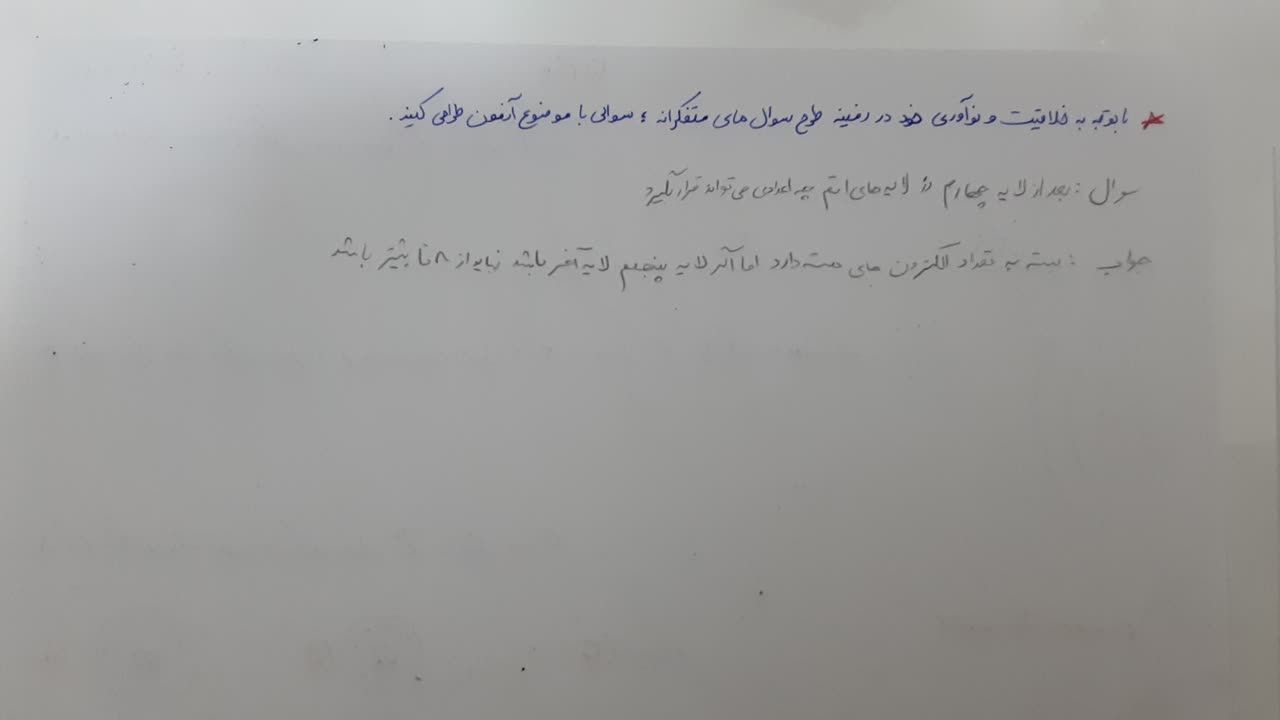 * با توجه به خلاقیت و نوآوری خود در زمینه طرح سوال های متفکرانه ؛ سوالی با موضوع آزمون طراحی کنید .
سوال : بعد از لایه چهارم لایه های اتم چه اعدادی می تواند قرار بگیرد
جواب : بسته به تعداد الکترون های هسته دارد اما اگر لایه پنجم لایه آخر باشد نباید از ۸ تا بیشتر باشد